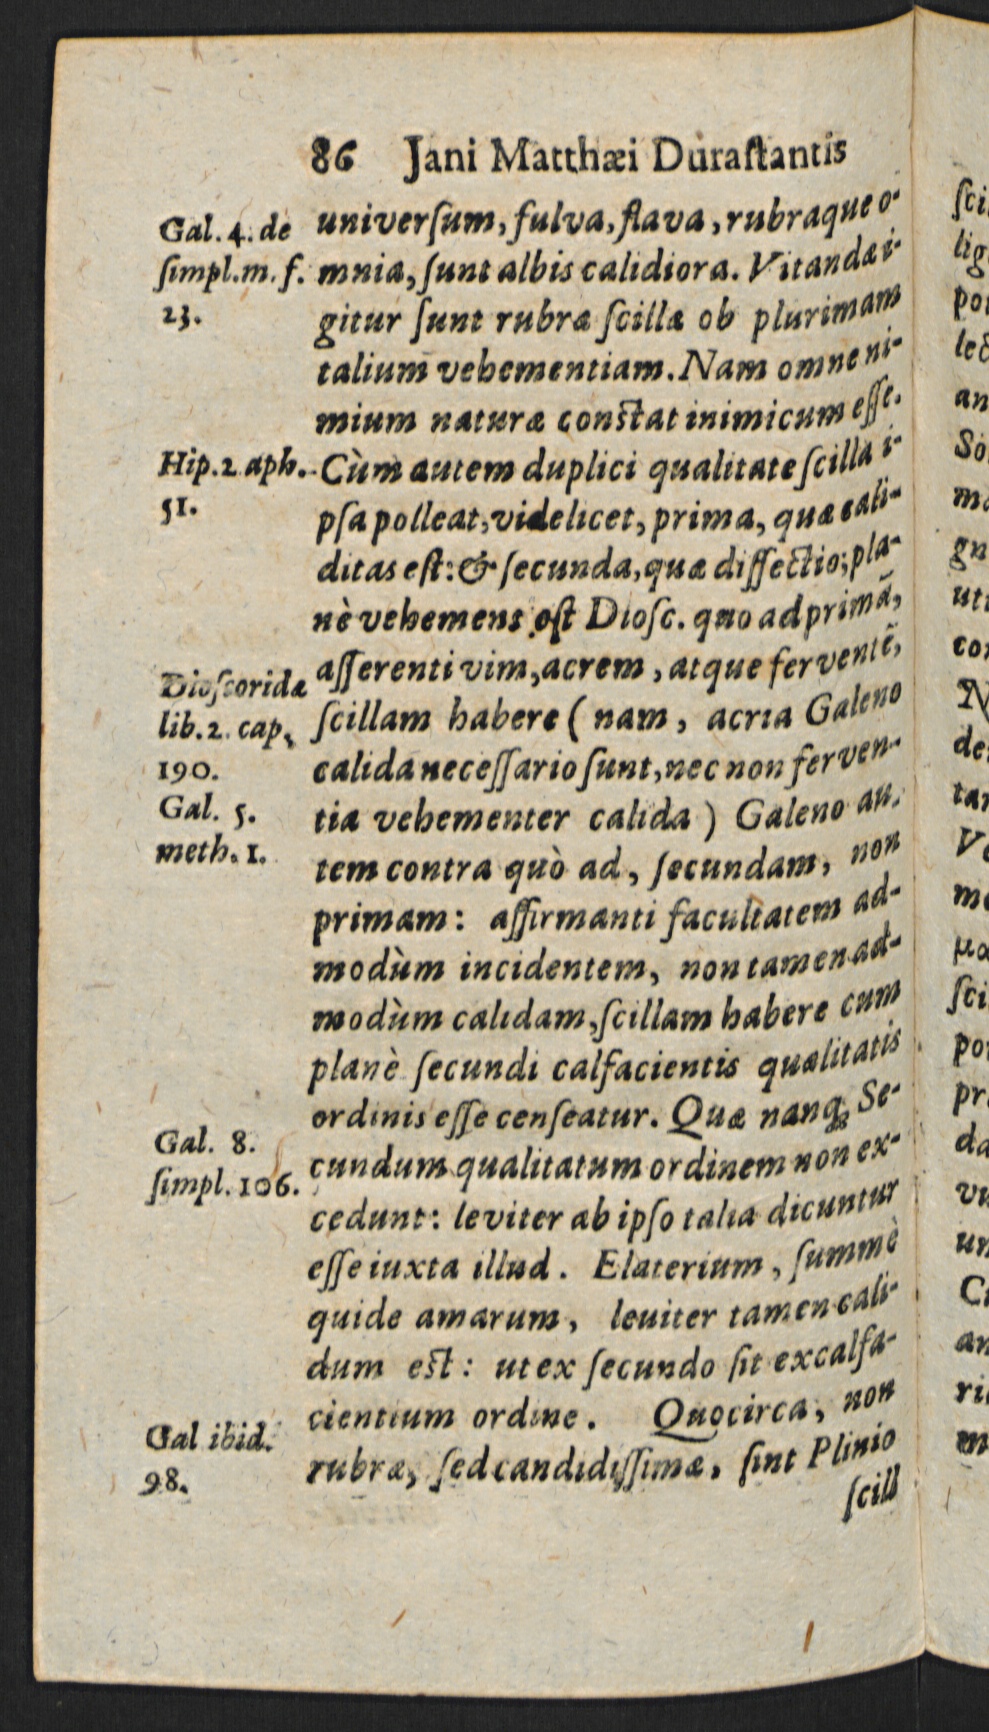 86 Jani Matthæi Duraſtantis
Gal. 4. de
ſimpl. m. f.
23.
Hip. 2 aph.
51.
Dioſcoridæ
lib. 2. cap,
190.
Gal. 5.
meth. 1.
Gal. 8.
ſimpl. 106.
Gal ibid.
98.
univerſum, fulva, flava, rubraque o-
mnia, ſunt albis calidiora. Vitandæ i-
gitur ſunt rubræ ſcillæ ob plurimam
talium vehementiam. Nam omne ni-
mium naturæ conſtat inimicum eſſe.
Cùm autem duplici qualitate ſcilla i-
pſa polleat, videlicet, prima, quæ cali-
ditas eſt: & ſecunda, quæ diſſectio; pla-
nè vehemens eſt Dioſc. quo ad primã,
aſſerenti vim, acrem, atque ferventẽ,
ſcillam habere ( nam, acria Galeno
calida neceſſario ſunt, nec non ferven-
tia vehementer calida ) Galeno au-
tem contra quò ad, ſecundam, non
primam: affirmanti facultatem ad-
modùm incidentem, non tamen ad-
modùm calidam, ſcillam habere cum
planè ſecundi calfacientis qualitatis
ordinis eſſe cenſeatur. Quæ nanq; Se-
cundum qualitatum ordinem non ex-
cedunt: leviter ab ipſo talia dicuntur
eſſe iuxta illud. Elaterium, ſummè
quide amarum, leuiter tamen cali-
dum eſt: ut ex ſecundo ſit excalfa-
cientium ordine. Quocirca, non
rubræ, ſed candidiſſimæ, ſint Plinio
ſcill